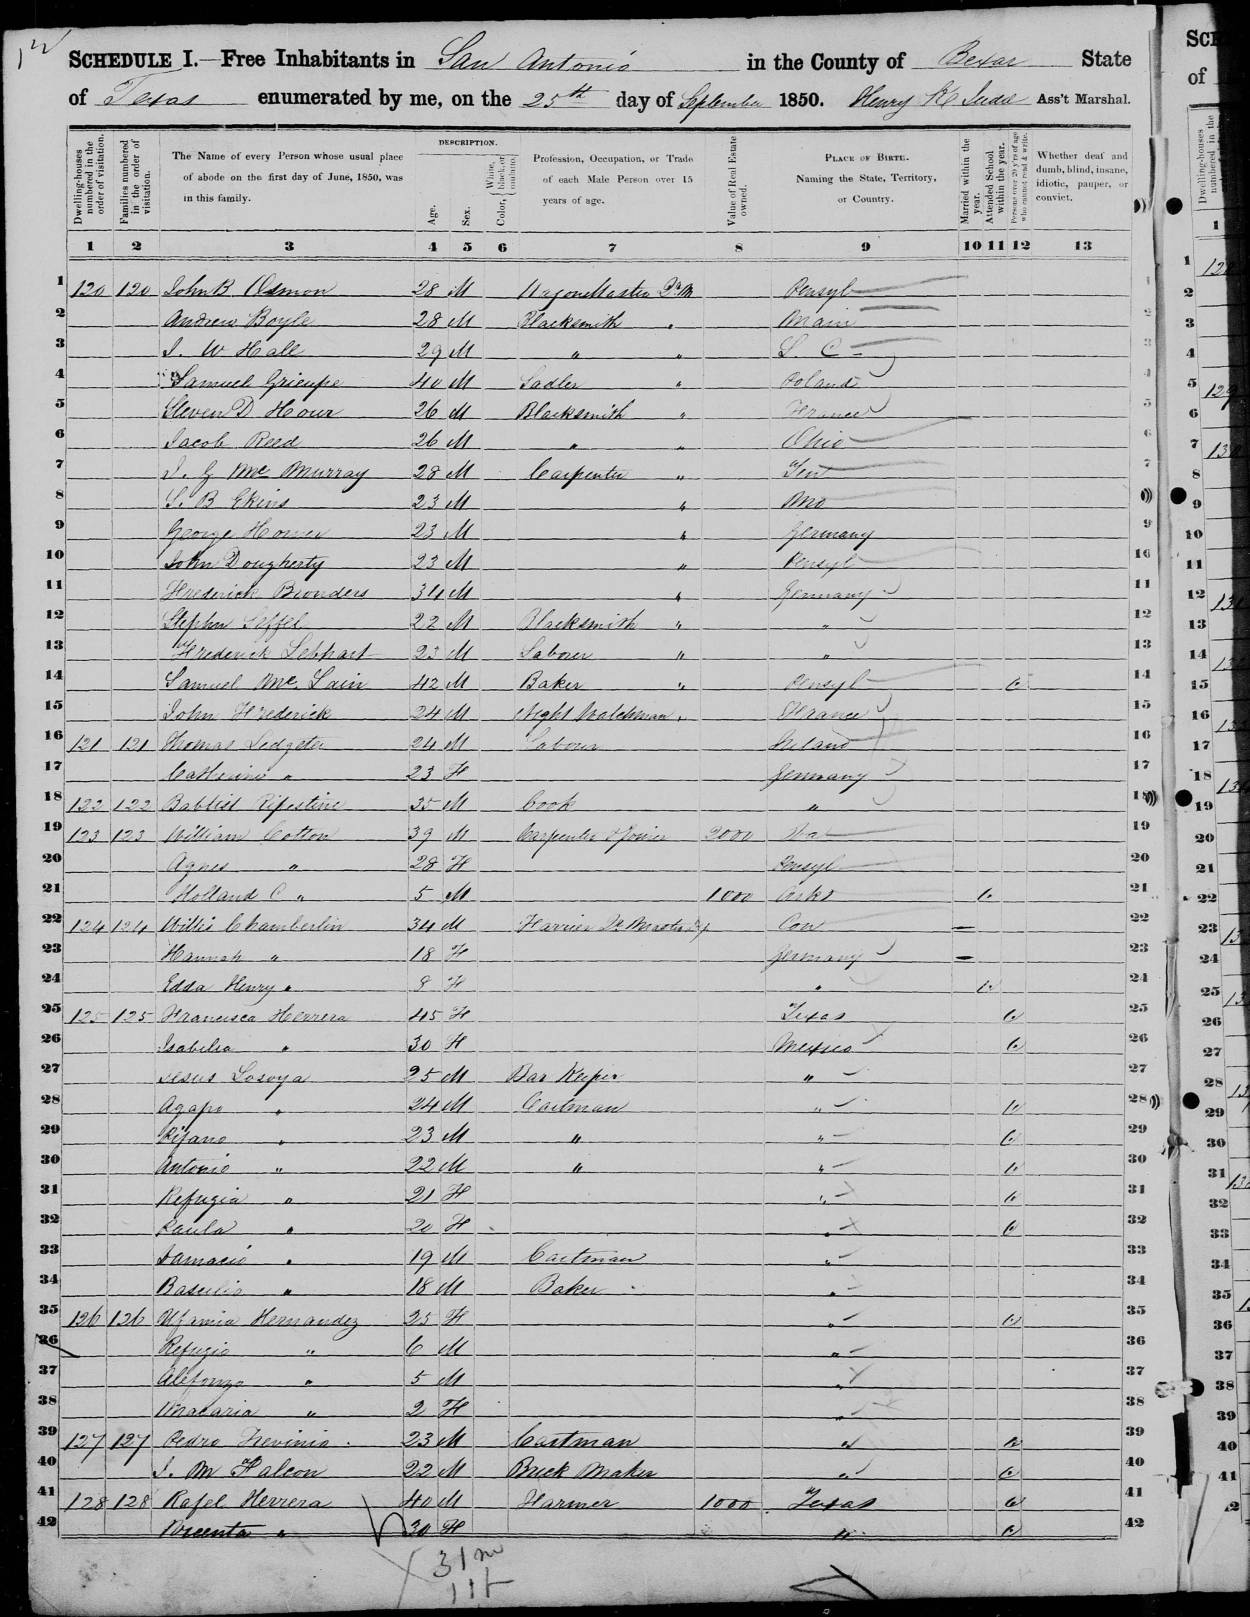 SCHEDULE I.—Free Inhabitants in San Antonio in the County of Bexar State
of Texas enumerated by me, on the 25th day of September 1850. Henry K Judd Ass't Marshal.
Dwelling-houses numbered in the order of visitation.
Families numbered in the order of visitation.
The Name of every Person whose usual place of abode on the first day of June, 1850, was in this family.
DESCRIPTION.
Age.
Sex.
Color, White, black, or mulatto.
Profession, Occupation, or Trade of each Male Person over 15 years of age.
Value of Real Estate owned.
PLACE OF BIRTH. Naming the State, Territory, or Country.
Married within the year.
Attended School within the year.
Persons over 20 y'rs of age who cannot read & write.
Whether deaf and dumb, blind, insane, idiotic, pauper, or convict.
1 2 3 4 5 6 7 8 9 10 11 12 13
1 120 120 John B Osmon 28 M Wagon Master Qr M Pensyl 1
2 Andrew Boyle 28 M Blacksmith " Main 2
3 J. W Hall 29 M " " S. C 3
4 Samuel 40 M Sadler " Poland 4
5 Steven D Hour 26 M Blacksmith " France 5
6 Jacob Reed 26 M " " Ohio 6
7 J. G Mc Murray 28 M Carpenter " Ten 7
8 S. B Ekins 23 M " Mo 8
9 George Homer 23 M " Germany 9
10 John Dougherty 23 M " Pensyl 10
11 Frederick 34 M " Germany 11
12 Stephen Seffel 22 M Blacksmith " " 12
13 Frederick Lebhart 23 M Laborer " " 13
14 Samuel Mc Lain 42 M Baker " Pensyl 14
15 John Frederick 24 M Night Watchman " France 15
16 121 121 Thomas Ledgeter 24 M Labour Ireland 16
17 Catherine " 23 F Germany 17
18 122 122 Babtist 35 M Cook " 18
19 123 123 William Cotton 39 M Carpenter & Joiner 2000 19
20 Agnes " 28 F Pensyl 20
21 Holland C " 5 M 1000 Arks 21
22 124 124 Willis Chamberlin 34 M Farrier Qr Master Con 22
23 Hannah " 18 F Germany 23
24 Edda Henry " 8 F " 24
25 125 125 Francisca Herrera 45 F Texas 25
26 Isabella " 30 F Mexico 26
27 Jesus Losoya 25 M Bar Keeper " 27
28 Agapo " 24 M Cartman " 28
29 " 23 M " " 29
30 Antonio " 22 M " " 30
31 Refugia " 21 F " 31
32 Paula " 20 F " 32
33 Damacio " 19 M Cartman " 33
34 Basilio " 18 M Baker " 34
35 126 126 Ufamia Hernandez 25 F " 35
36 Refugio " 6 M " 36
37 Alefonzo " 5 M " 37
38 Macaria " 2 F " 38
39 127 127 Pedro Trevinio 23 M Cartman " 39
40 J. M Falcon 22 M Brick Maker " 40
41 128 128 Rafel Herrera 40 M Farmer 1000 Texas 41
42 " 30 F " 42
31 m
11 f